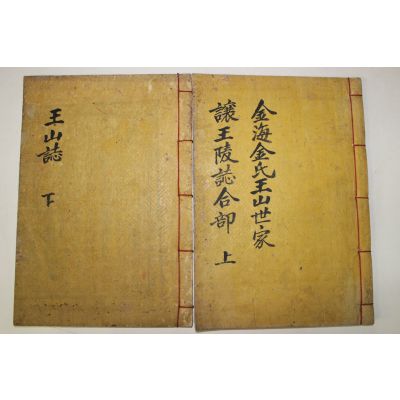 金海金氏王山世家
讓王陵誌合部 上
王山誌 下